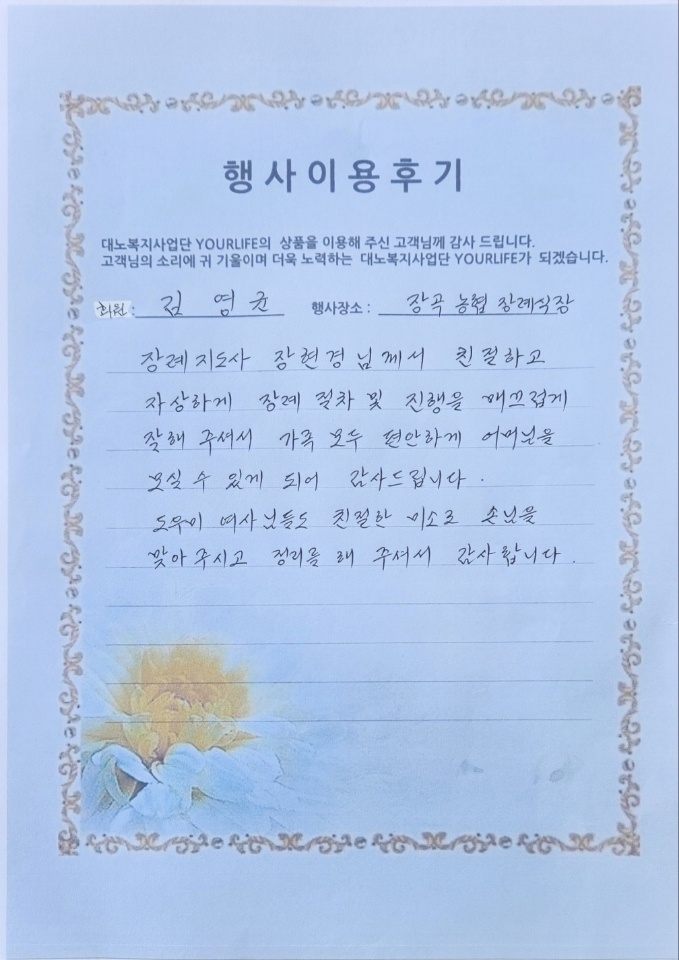 행사이용후기
대노복지사업단 YOURLIFE의 상품을 이용해 주신 고객님께 감사 드립니다.
고객님의 소리에 귀 기울이며 더욱 노력하는 대노복지사업단 YOURLIFE가 되겠습니다.
회원 : 김 영 균 행사장소 : 장곡 농협 장례식장
장례지도사 장현경님께서 친절하고
자상하게 장례 절차 및 진행을 매끄럽게
잘해 주셔서 가족 모두 편안하게 어머님을
모실 수 있게 되어 감사드립니다.
도우미 여사님들도 친절한 미소로 손님을
맞아주시고 정리를 해 주셔서 감사합니다.